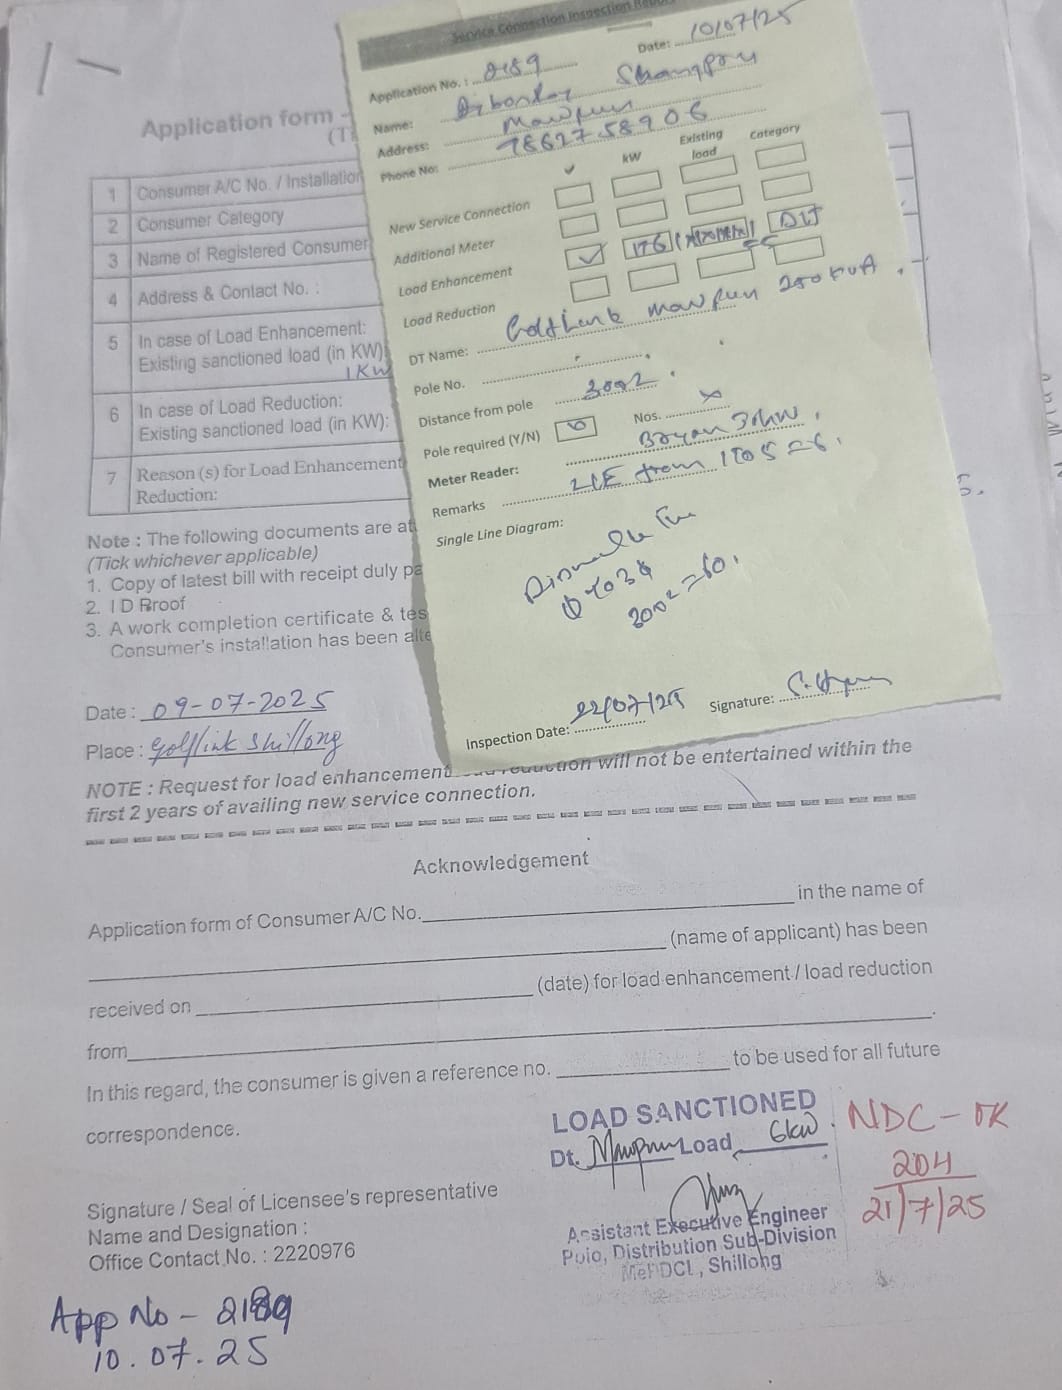 Service Connection Inspection Report
Date: 10/07/25
Application No. : 2189
Name: Shangpru
Address: Mawpun
Phone No: 7862758906
✓ kW Existing load Category
New Service Connection
Additional Meter
Load Enhancement ✓ DLT
Load Reduction
DT Name: Golf Link Mawpun 250 KVA
Pole No.
Distance from pole 30m2
Pole required (Y/N) Nos. x
Meter Reader: Bryan
Remarks LE from 1 to 5 = 6.
Single Line Diagram:
Dismantle
Inspection Date: 22/07/25 Signature:
Application form -
1 Consumer A/C No. / Installation
2 Consumer Category
3 Name of Registered Consumer
4 Address & Contact No. :
5 In case of Load Enhancement:
Existing sanctioned load (in KW)
1KW
6 In case of Load Reduction:
Existing sanctioned load (in KW):
7 Reason (s) for Load Enhancement
Reduction:
Note : The following documents are at
(Tick whichever applicable)
1. Copy of latest bill with receipt duly pa
2. I D Proof
3. A work completion certificate & tes
Consumer's installation has been alte
Date : 09-07-2025
Place : Golflink Shillong
NOTE : Request for load enhancement reduction will not be entertained within the
first 2 years of availing new service connection.
Acknowledgement
Application form of Consumer A/C No. in the name of
(name of applicant) has been
received on (date) for load enhancement / load reduction
from .
In this regard, the consumer is given a reference no. to be used for all future
correspondence.
LOAD SANCTIONED
Dt. Mawpun Load 6kw.
NDC - OK
204
21/7/25
Assistant Executive Engineer
Polo, Distribution Sub-Division
MePDCL, Shillong
Signature / Seal of Licensee's representative
Name and Designation :
Office Contact No. : 2220976
App No - 2189
10.07.25